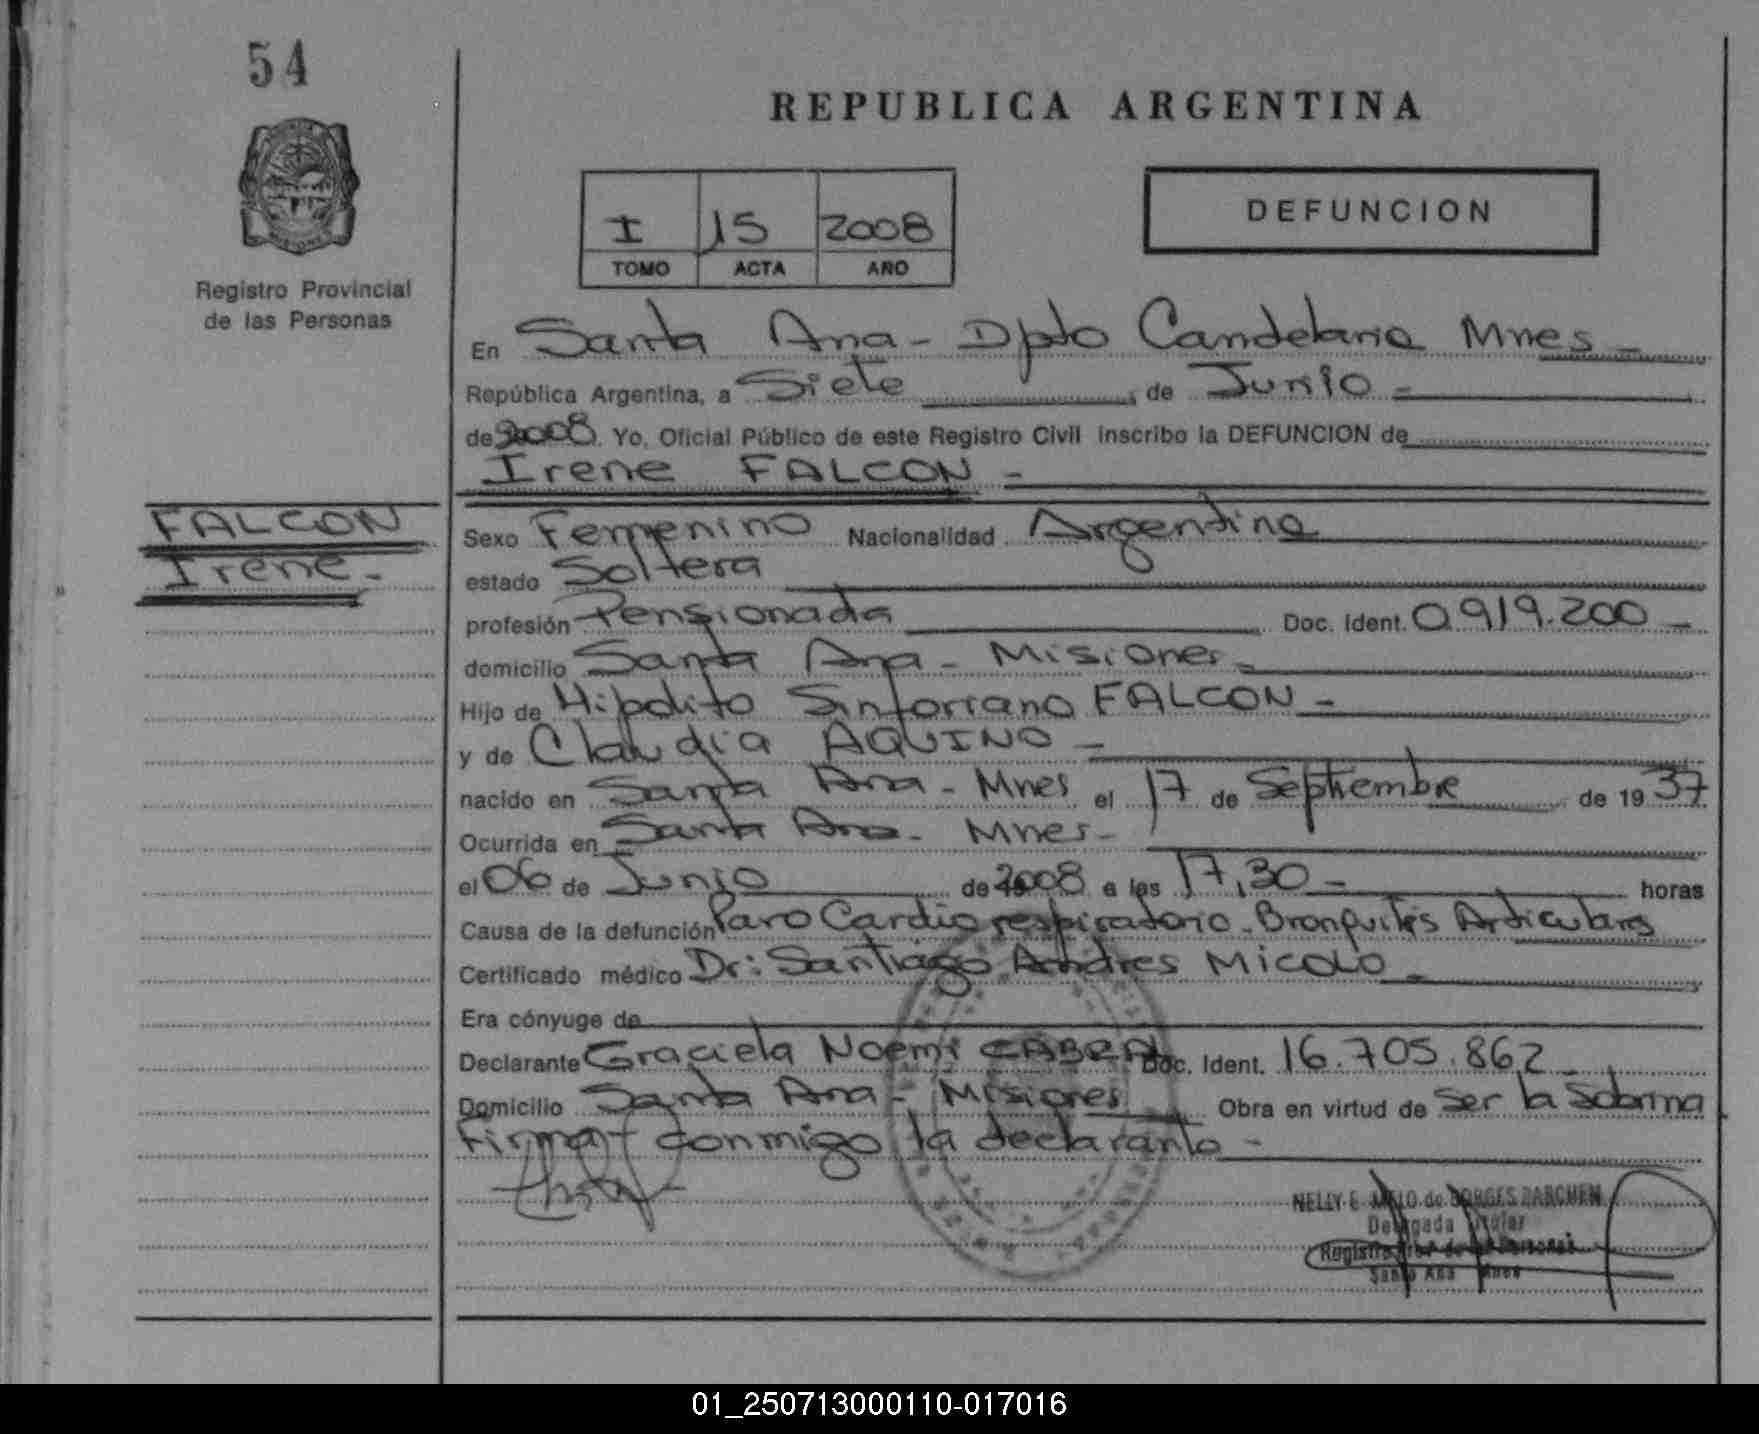 54
REPUBLICA ARGENTINA
DEFUNCION
I 15 2008
TOMO ACTA AÑO
Registro Provincial
de las Personas
En Santa Ana - Dpto Candelaria Mnes -
República Argentina, a Siete de Junio -
de 2008. Yo, Oficial Público de este Registro Civil inscribo la DEFUNCION de
Irene FALCON -
FALCON
Irene -
Sexo Femenino Nacionalidad Argentina
estado Soltera
profesión Pensionada Doc. Ident. 0.919.200 -
domicilio Santa Ana - Misiones -
Hijo de Hipolito Sinforiano FALCON -
y de Claudia AQUINO -
nacido en Santa Ana - Mnes el 17 de Septiembre de 1937
Ocurrida en Santa Ana - Mnes -
el 06 de Junio de 2008 a las 17,30 - horas
Causa de la defunción Paro Cardio respiratorio - Bronquitis
Certificado médico Dr: Santiago Andres Micolo -
Era cónyuge de
Declarante Graciela Noemi Doc. Ident. 16.705.862 -
Domicilio Santa Ana - Misiones Obra en virtud de Ser la Sobrina
Firma conmigo la declarante -
NELLY E. MELO de BORGES
Delegada Titular
Registro de las Personas
Santa Ana Mnes
01_250713000110-017016